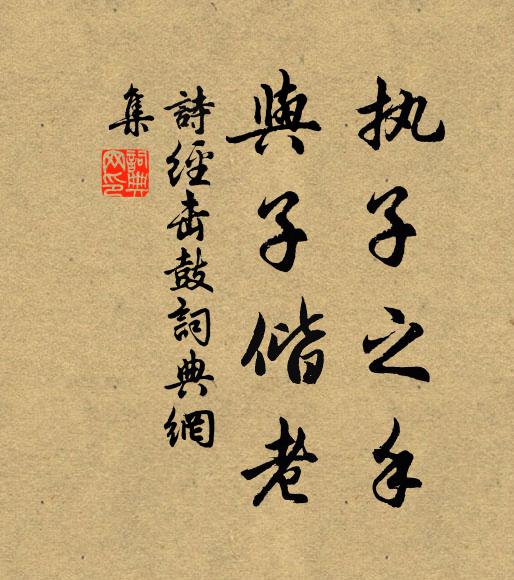 执子之手
與子偕老
詩經击鼓詞典網
集
詞典网印